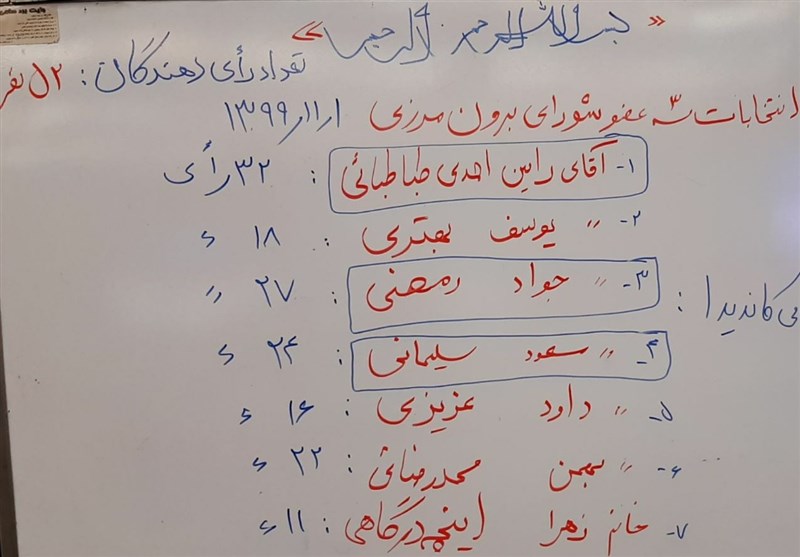 « بسم الله الرحمن الرحیم »
تعداد رأی دهندگان : ۵۲ نفر
انتخابات سه عضو شورای برون مرزی ۱۳۹۹/۱۱/۱
۱- آقای رامین احدی طباطبائی : ۳۲ رأی
۲- " یوسف بهتری : ۱۸ ء
۳- " جواد رمضنی : ۲۷ "
کاندیدا :
۴- " مسعود سلیمانی : ۲۴ ء
۵- " داود عزیزی : ۱۶ ء
۶- " بهمن محمدرضائی : ۲۲ ء
۷- خانم زهرا اینچه درگاهی : ۱۱ ء